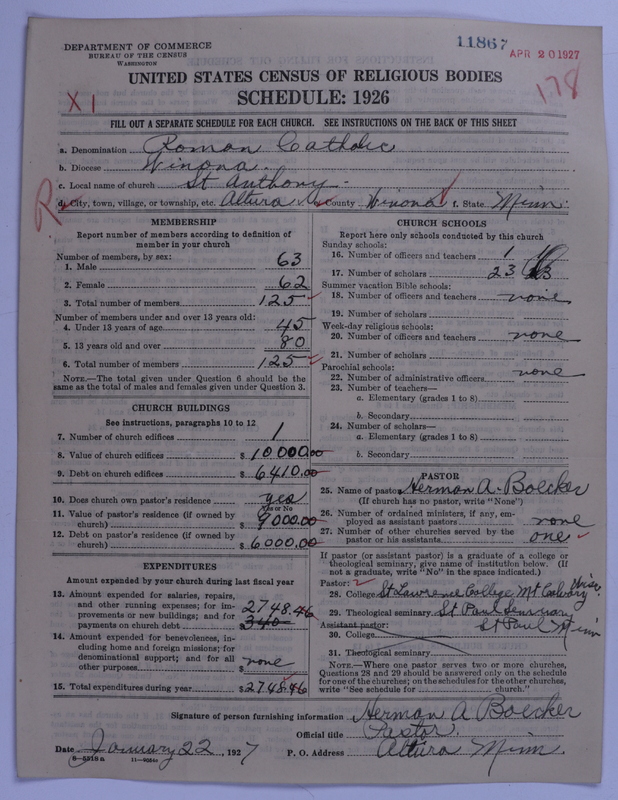 DEPARTMENT OF COMMERCE
BUREAU OF THE CENSUS
WASHINGTON
11867
APR 20 1927
178
X 1
UNITED STATES CENSUS OF RELIGIOUS BODIES
SCHEDULE: 1926
FILL OUT A SEPARATE SCHEDULE FOR EACH CHURCH. SEE INSTRUCTIONS ON THE BACK OF THIS SHEET
a. Denomination Roman Catholic
b. Diocese Winona
c. Local name of church St Anthony
d. City, town, village, or township, etc. Altura e. County Winona f. State Minn.
MEMBERSHIP
Report number of members according to definition of
member in your church
Number of members, by sex:
1. Male 63
2. Female 62
3. Total number of members 125
Number of members under and over 13 years old:
4. Under 13 years of age 45
5. 13 years old and over 80
6. Total number of members 125
NOTE.—The total given under Question 6 should be the
same as the total of males and females given under Question 3.
CHURCH BUILDINGS
See instructions, paragraphs 10 to 12
7. Number of church edifices 1
8. Value of church edifices $ 10000.00
9. Debt on church edifices $ 6410.00
10. Does church own pastor's residence yes
Yes or No
11. Value of pastor's residence (if owned by
church) $ 9000.00
12. Debt on pastor's residence (if owned by
church) $ 6000.00
EXPENDITURES
Amount expended by your church during last fiscal year
13. Amount expended for salaries, repairs,
and other running expenses; for im-
provements or new buildings; and for
payments on church debt 2748.46
340
14. Amount expended for benevolences, in-
cluding home and foreign missions; for
denominational support; and for all
other purposes $ none
15. Total expenditures during year $ 2748.46
CHURCH SCHOOLS
Report here only schools conducted by this church
Sunday schools:
16. Number of officers and teachers 1
17. Number of scholars 23
Summer vacation Bible schools:
18. Number of officers and teachers none
19. Number of scholars
Week-day religious schools:
20. Number of officers and teachers none
21. Number of scholars
Parochial schools:
22. Number of administrative officers none
23. Number of teachers—
a. Elementary (grades 1 to 8)
b. Secondary
24. Number of scholars—
a. Elementary (grades 1 to 8)
b. Secondary
PASTOR
25. Name of pastor Herman A. Boecker
(If church has no pastor, write "None")
26. Number of ordained ministers, if any, em-
ployed as assistant pastors none
27. Number of other churches served by the
pastor or his assistants one
If pastor (or assistant pastor) is a graduate of a college or
theological seminary, give name of institution below. (If
not a graduate, write "No" in the space indicated.)
Pastor:
28. College St Lawrence College, Mt Calvary Wisc.
29. Theological seminary St Paul Seminary
Assistant pastor: St Paul Minn
30. College
31. Theological seminary
NOTE.—Where one pastor serves two or more churches,
Questions 28 and 29 should be answered only on the schedule
for one of the churches; on the schedules for the other churches,
write "See schedule for church."
Signature of person furnishing information Herman A Boecker
Official title Pastor.
Date January 22, 1927 P. O. Address Altura Minn.
8—5518a